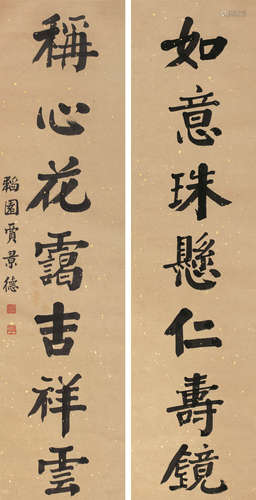 如意珠懸仁壽鏡
稱心花靄吉祥雲
韜園賈景德